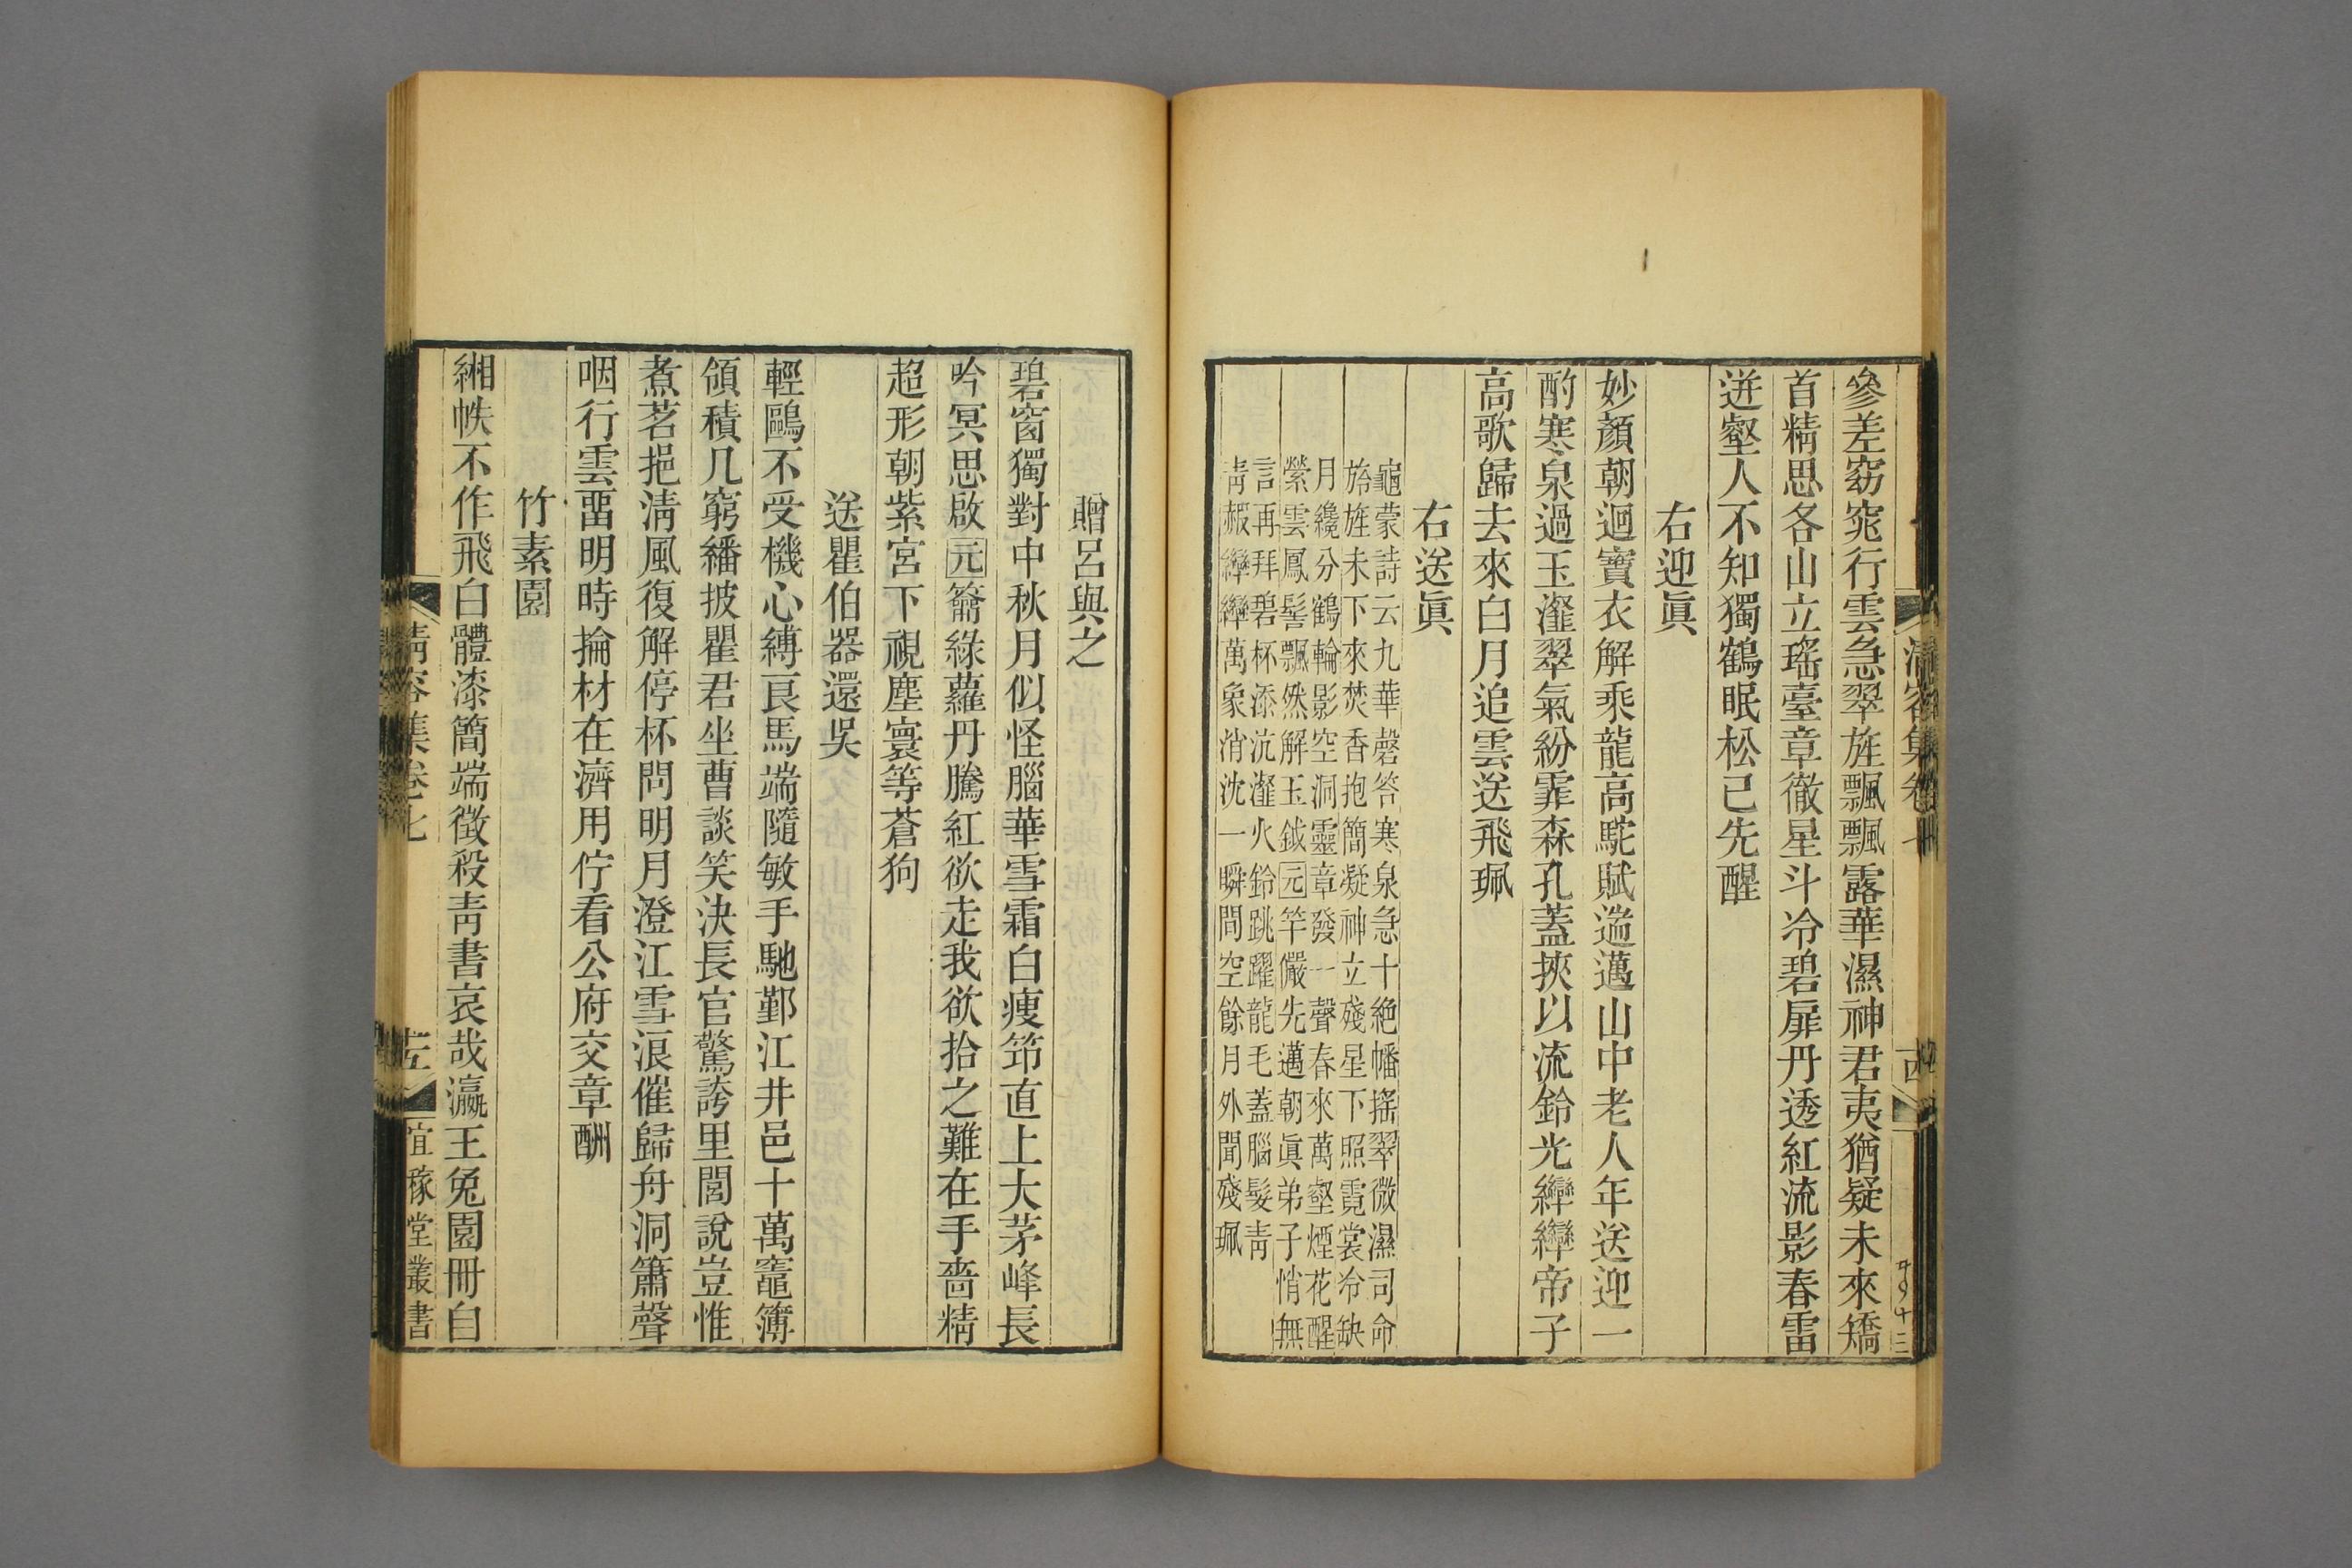 參差窈窕行雲急翠旌飄飄露華濕神君夷猶疑未來矯
首精思各山立瑤臺章徹星斗冷碧扉丹透紅流影春雷
迸壑人不知獨鶴眠松己先醒
右迎眞
妙顏朝迴寶衣解乘龍高駝賦遄邁山中老人年送迎一
酌寒泉過玉瀣翠氣紛霏森孔蓋挾以流鈴光繂繂帝子
高歌歸去來白月追雲送飛珮
右送眞
龜蒙詩云九華磬答寒泉急十絶幡搖翠微濕司命
旍旌未下來焚香抱簡凝神立殘星下照霓裳冷缺
月纔分鶴輪影空洞靈章發一聲春來萬壑煙花醒
縈雲鳳髻飄然解玉鉞元竿儼先邁朝眞弟子悄無
言再拜碧杯添沆瀣火鈴跳躍龍毛蓋腦髮靑
靑赮繂繂萬象消沈一瞬間空餘月外聞殘珮
清容集卷七
十四
贈呂與之
碧窗獨對中秋月似怪腦華雪霜白瘦笻直上大茅峰長
吟冥思啟元籥綠蘿丹騰紅欲走我欲拾之難在手嗇精
超形朝紫宮下視塵寰等蒼狗
送瞿伯器還吳
輕鷗不受機心縛良馬端隨敏手馳鄞江井邑十萬竈簿
領積几窮繙披瞿君坐曹談笑決長官驚誇里閭說豈惟
煮茗挹淸風復解停杯問明月澄江雪浪催歸舟洞簫聲
咽行雲畱明時掄材在濟用佇看公府交章酬
竹素園
緗帙不作飛白體漆簡端徵殺靑書哀哉瀛王兔園冊自
清容集卷七
十五
宜稼堂叢書